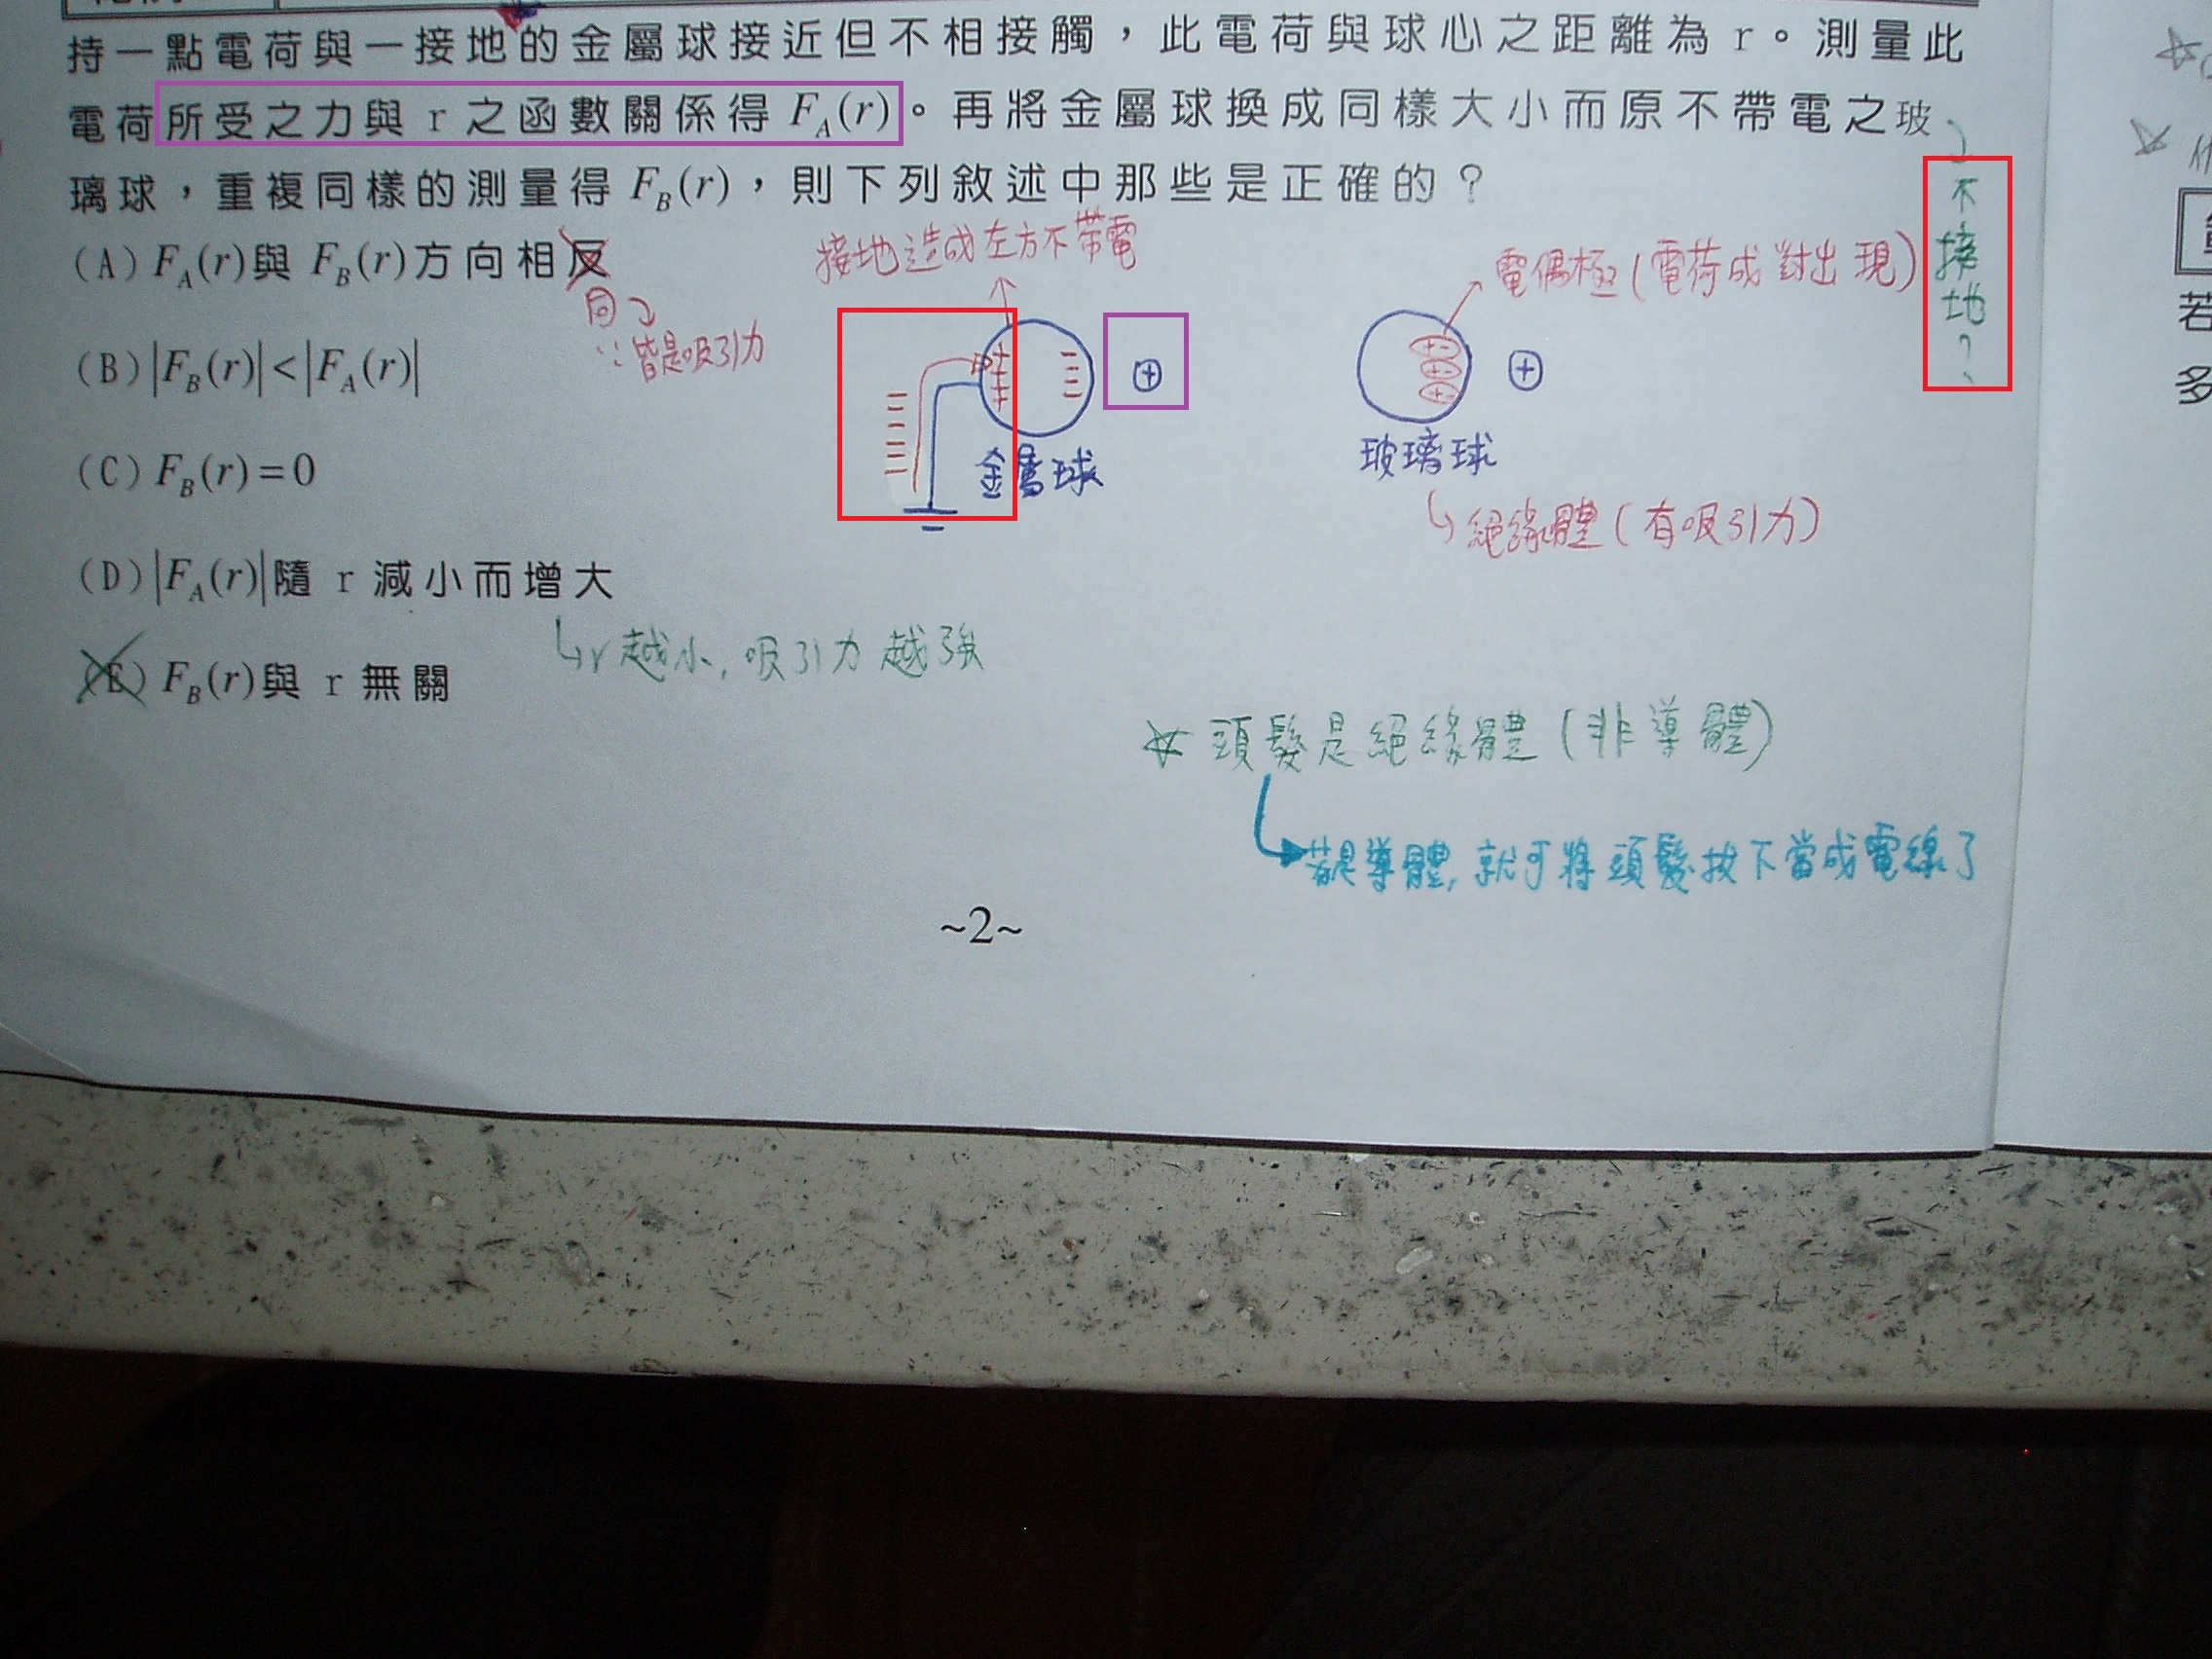 持一點電荷與一接地的金屬球接近但不相接觸，此電荷與球心之距離為 r。測量此
電荷所受之力與 r 之函數關係得 F_A(r)。再將金屬球換成同樣大小而原不帶電之玻
璃球，重複同樣的測量得 F_B(r)，則下列敘述中那些是正確的？
不接地？
(A) F_A(r)與 F_B(r)方向相反
同
∵皆是吸引力
接地造成左方不帶電
電偶極(電荷成對出現)
(B) |F_B(r)|<|F_A(r)|
金屬球
玻璃球
絕緣體(有吸引力)
(C) F_B(r)=0
(D) |F_A(r)|隨 r 減小而增大
r越小,吸引力越強
(E) F_B(r)與 r 無關
☆頭髮是絕緣體(非導體)
若是導體,就可將頭髮拔下當成電線了
~2~
若
多